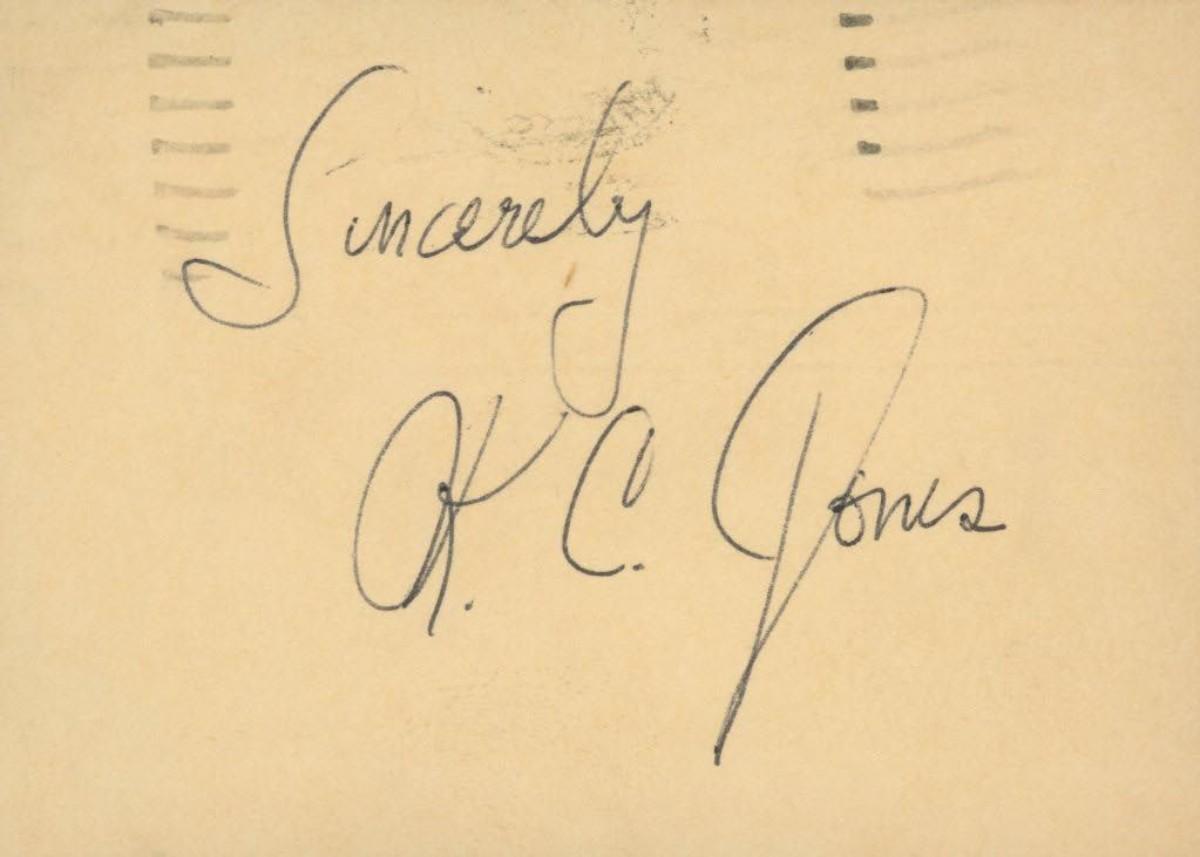 Sincerely
K. C. Jones